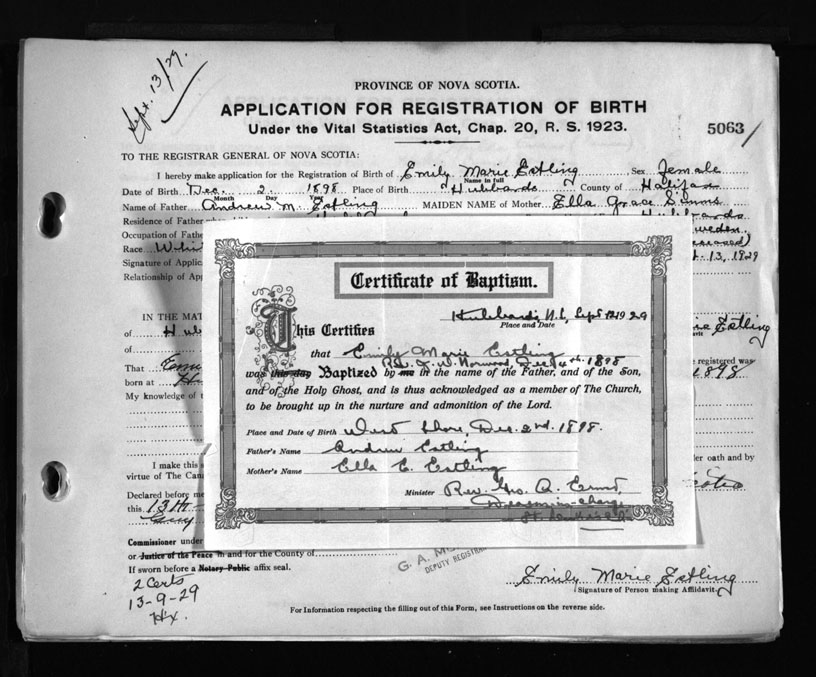 Sept. 13/29.
PROVINCE OF NOVA SCOTIA.
APPLICATION FOR REGISTRATION OF BIRTH
Under the Vital Statistics Act, Chap. 20, R. S. 1923.
5063
TO THE REGISTRAR GENERAL OF NOVA SCOTIA:
I hereby make application for the Registration of Birth of Emily Marie Estling Sex Female
Name in full
Date of Birth Dec. 2. 1898 Place of Birth Hubbards County of Halifax
Month Day Year
Name of Father Andrew M. Estling MAIDEN NAME of Mother Ella Grace Simms
Residence of Father Hubbards
Occupation of Father Sweden.
Race Whi
Signature of Applic t. 13, 1929
Relationship of App
IN THE MAT
of Hu rie Estling
of
That Emi e registered was
born at H 1898
My knowledge of t
I make this er oath and by
virtue of The Can
Declared before me
this 13th
Commissioner under
or Justice of the Peace in and for the County of
If sworn before a Notary Public affix seal.
2 Certs
13-9-29
Hx.
G. A. M
DEPUTY REGISTRAR
Emily Marie Estling
Signature of Person making Affidavit
For Information respecting the filling out of this Form, see Instructions on the reverse side.
Certificate of Baptism.
Hubbards N.S, Sept 12 1929
Place and Date
This Certifies
that Emily Marie Estling
Rev. Norwood Dec 4th. 1898
was this day Baptized by me in the name of the Father, and of the Son,
and of the Holy Ghost, and is thus acknowledged as a member of The Church,
to be brought up in the nurture and admonition of the Lord.
Place and Date of Birth West Shore, Dec. 2nd. 1898.
Father's Name Andrew Estling
Mother's Name Ella E. Estling
Minister Rev. Geo. A. Ernst,